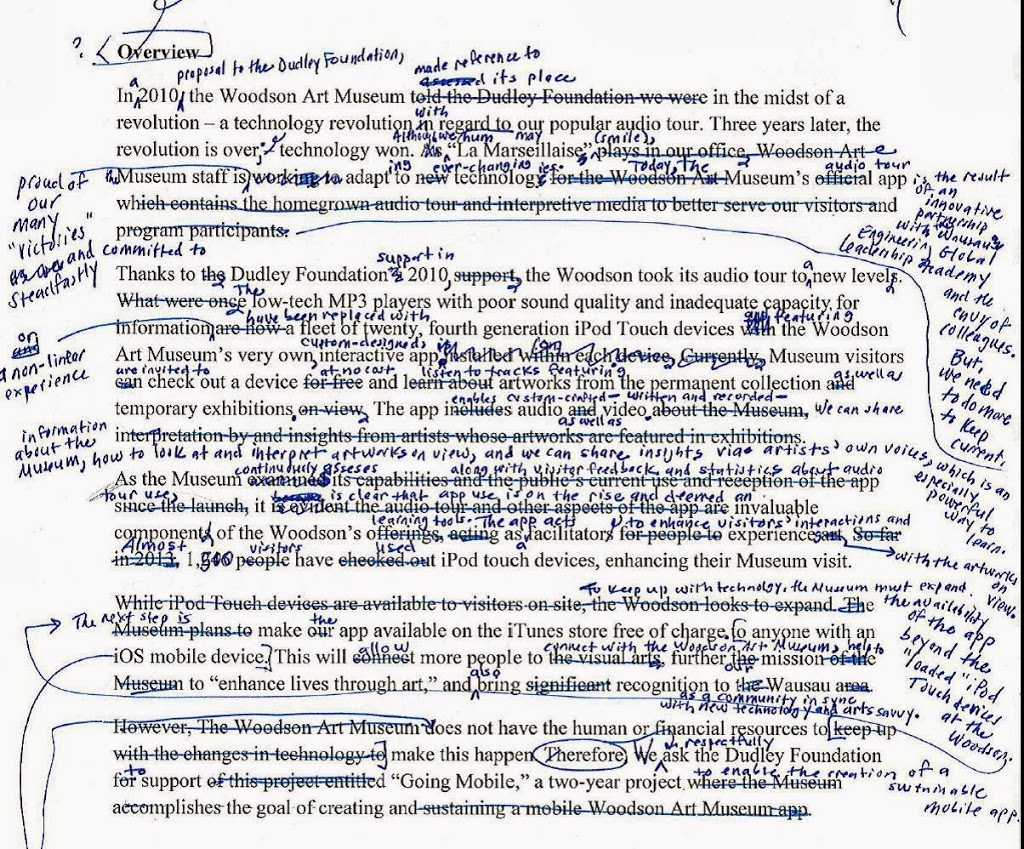 ? Overview
a proposal to the Dudley Foundation, made reference to
its place
In 2010, the Woodson Art Museum told the Dudley Foundation we were in the midst of a
with
revolution – a technology revolution in regard to our popular audio tour. Three years later, the
Although we hum may (smile),
revolution is over; technology won. As “La Marseillaise” plays in our office, Woodson Art
ing ever-changing ies. Today, the audio tour
Museum staff is working to adapt to new technology for the Woodson Art Museum’s official app is the result
which contains the homegrown audio tour and interpretive media to better serve our visitors and
program participants.
proud of the
our
many
“victories”
and committed to
steadfastly
of an
innovative
partnership
with Wausau's
Engineering Global
Leadership Academy
and the
envy of
colleagues.
But,
we need
to do more
to keep
current.
support in a
Thanks to the Dudley Foundation’s 2010 support, the Woodson took its audio tour to new levels.
The
What were once low-tech MP3 players with poor sound quality and inadequate capacity for
have been replaced with featuring
information are now a fleet of twenty, fourth generation iPod Touch devices with the Woodson
or
a non-linear
experience
custom-designed,
Art Museum’s very own interactive app installed within each device. Currently, Museum visitors
are invited to at no cost listen to tracks featuring as well as
can check out a device for free and learn about artworks from the permanent collection and
enables custom-crafted – written and recorded –
temporary exhibitions on view. The app includes audio and video about the Museum, we can share
as well as
interpretation by and insights from artists whose artworks are featured in exhibitions.
information
about the
Museum, how to look at and interpret artworks on view, and we can share insights via artists' own voices, which is an
especially
powerful
way to
learn.
continuously assesses along with visitor feedback and statistics about audio
As the Museum examined its capabilities and the public’s current use and reception of the app
tour use, is clear that app use is on the rise and deemed an
since the launch, it is evident the audio tour and other aspects of the app are invaluable
learning tools. The app acts to enhance visitors' interactions and
components of the Woodson’s offerings, acting as facilitators for people to experience art. So far
with the artworks
on
view.
Almost visitors used a
in 2013, 1, people have checked out iPod touch devices, enhancing their Museum visit.
To keep up with technology, the Museum must expand
While iPod Touch devices are available to visitors on-site, the Woodson looks to expand. The
the availability
of the app
beyond the
“loaded” iPod
Touch devices
at the
Woodson.
The next step is the
Museum plans to make our app available on the iTunes store free of charge to anyone with an
allow connect with the Woodson Art Museum, help to
iOS mobile device. This will connect more people to the visual arts, further the mission of the
also our
Museum to “enhance lives through art,” and bring significant recognition to the Wausau area.
as a community in sync
with new technology and arts savvy.
However, The Woodson Art Museum does not have the human or financial resources to keep up
respectfully
with the changes in technology to make this happen. Therefore, We ask the Dudley Foundation
to to enable the creation of a
for support of this project entitled “Going Mobile,” a two-year project where the Museum
sustainable
mobile app.
accomplishes the goal of creating and sustaining a mobile Woodson Art Museum app.